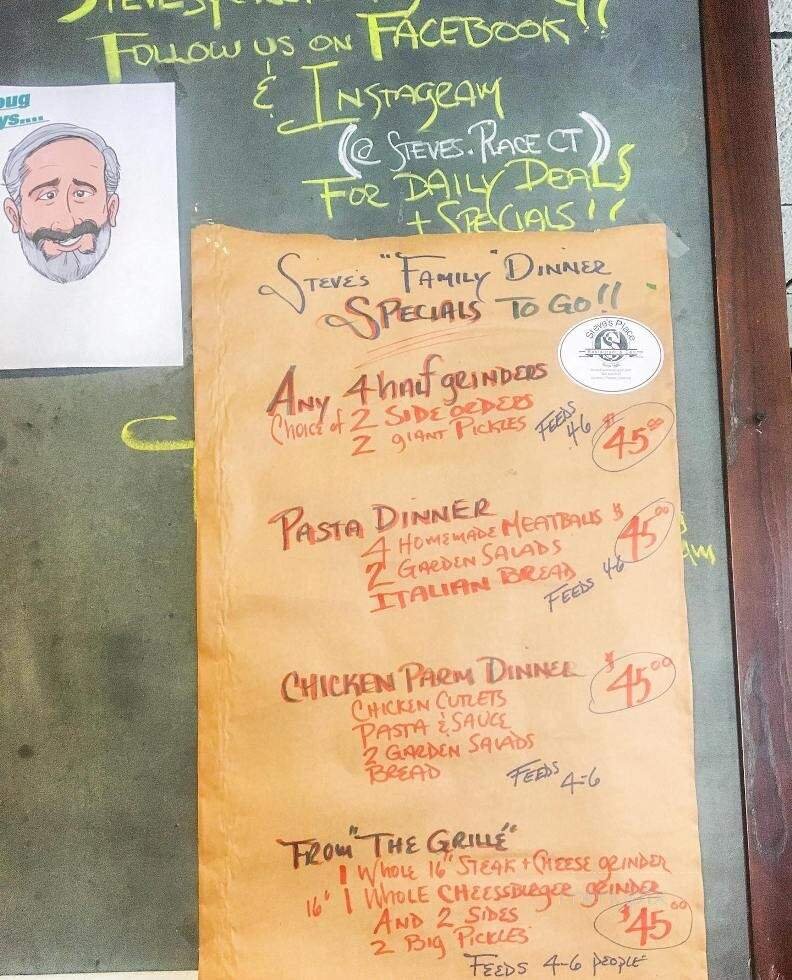 FOLLOW US ON FACEBOOK!!
& INSTAGRAM
(@ STEVES.PLACE CT)
FOR DAILY DEALS
+ SPECIALS!!
STEVE'S "FAMILY" DINNER
SPECIALS TO GO!!
Steve's Place
ANY 4 half grinders
Choice of 2 SIDE ORDERS
2 GIANT PICKLES
FEEDS
4-6
$45.00
PASTA DINNER
4 HOMEMADE MEATBALLS
2 GARDEN SALADS
ITALIAN BREAD
$45.00
FEEDS 4-6
CHICKEN PARM DINNER
$45.00
CHICKEN CUTLETS
PASTA & SAUCE
2 GARDEN SALADS
BREAD
FEEDS 4-6
FROM "THE GRILLE"
1 WHOLE 16" STEAK + CHEESE GRINDER
16" 1 WHOLE CHEESSBURGER GRINDER
AND 2 SIDES
2 BIG PICKLES
$45.00
FEEDS 4-6 PEOPLE